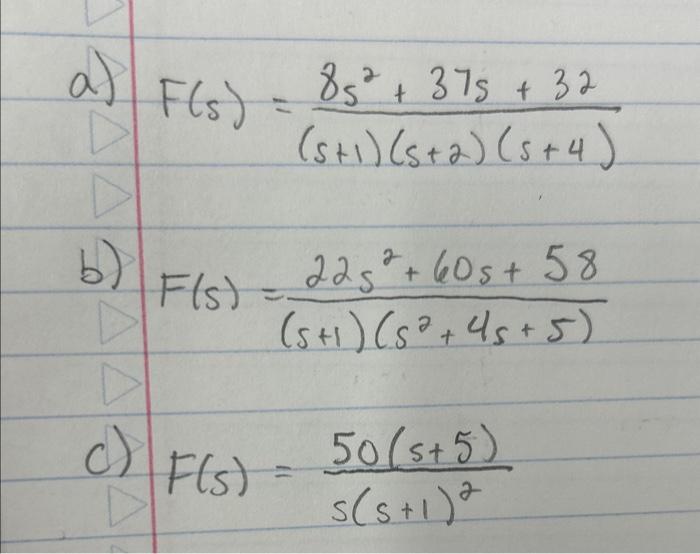 a) F(s) = 8s² + 37s + 32
(s+1)(s+2)(s+4)
b) F(s) = 22s² + 60s + 58
(s+1)(s² + 4s + 5)
c) F(s) = 50(s+5)
s(s+1)²